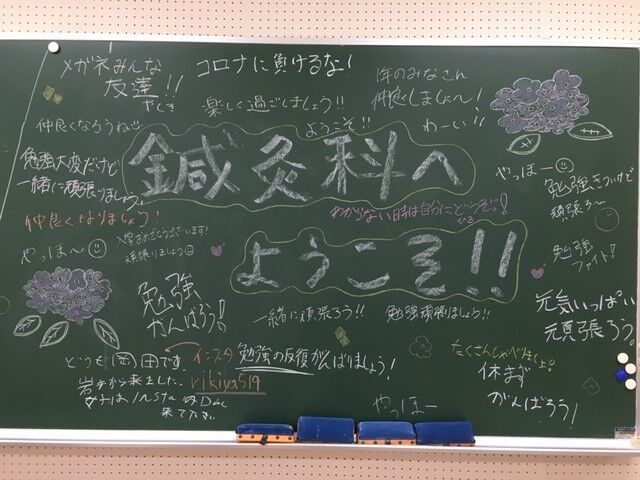 メガネみんな
友達!!
コロナに負けるな!
楽しく過ごしましょう!!
ようこそ!!
年のみなさん
仲良しましょ〜!
わーい!!
仲良くなろうね!!
勉強大変だけど
一緒に頑張りましょう!
鍼灸科へ
やっほー
勉強きついけど
頑張ろ〜
仲良くなりましょう!
わからない時は自分にどうぞっ!
やっほ〜
入学おめでとうございます!
頑張りましょう
ようこそ!!
勉強
ファイト!
勉強
がんばろう!
一緒に頑張ろう!!
勉強頑張りましょう!!
元気いっぱい
頑張ろう!
どうも岡田です。
インスタ
rikiya519
岩手から来ました。
女子はインスタの
来て下さい
勉強の反復がんばりましょう!
たくさんしゃべりましょ!
休まず
がんばろう!
やっほー